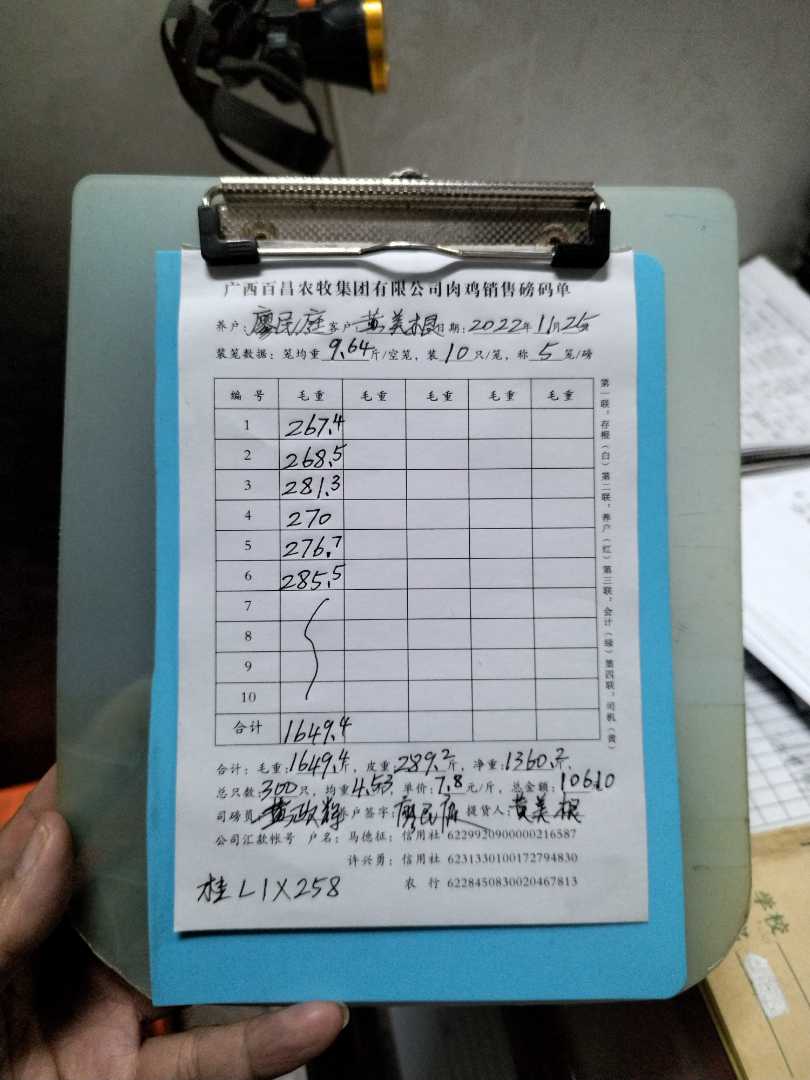 广西百昌农牧集团有限公司肉鸡销售磅码单
养户:廖民庭 客户:黄美根 日期:2022年11月25日
装笼数据:笼均重 9.64 斤/空笼,装 10 只/笼,称 5 笼/磅
编号 毛重 毛重 毛重 毛重 毛重
1 267.4
2 268.5
3 281.3
4 270
5 276.7
6 285.5
7
8
9
10
合计 1649.4
合计:毛重:1649.4斤,皮重:289.2斤,净重:1360.2斤,
总只数:300只,均重4.53,单价:7.8元/斤,总金额:10610
司磅员: 养户签字:廖民庭 提货人:黄美根
公司汇款帐号 户名:马德征:信用社 6229920900000216587
许兴勇:信用社 6231330100172794830
农行 6228450830020467813
桂L1X258
第一联,存根(白)第二联,养户(红)第三联,会计(绿)第四联,司机(黄)
学校